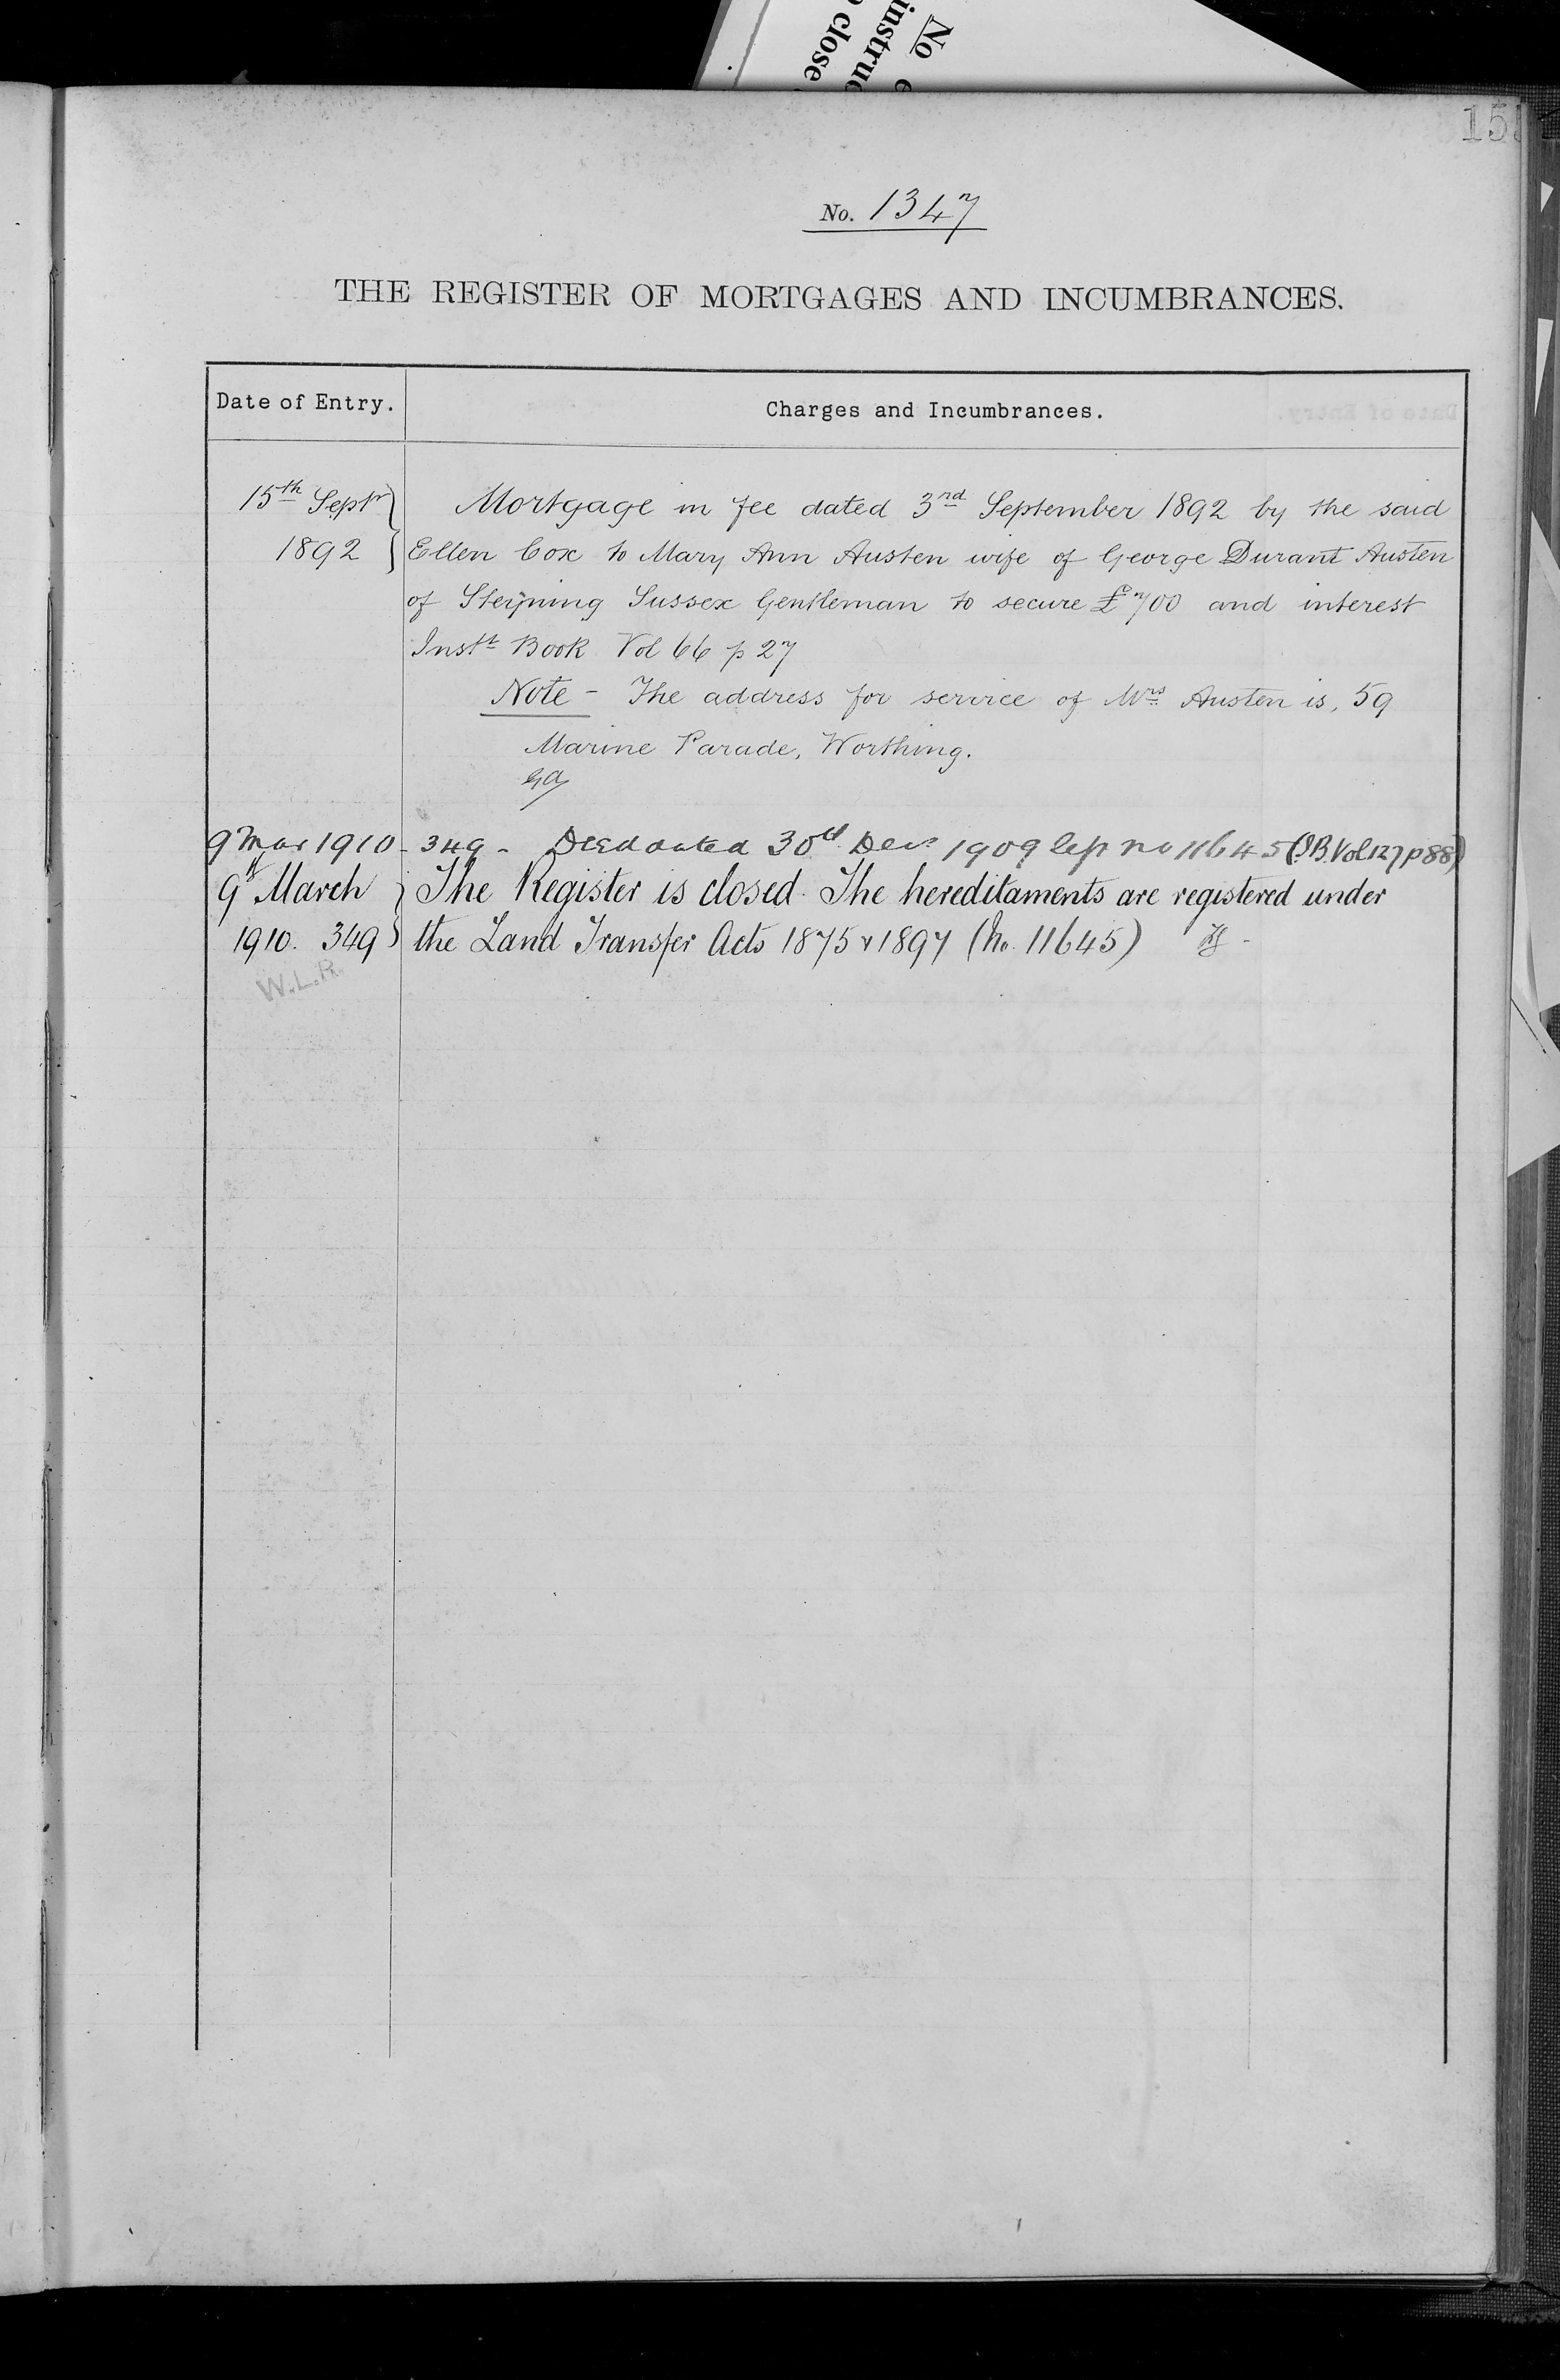 No
instruc
close
15
No. 1347
THE REGISTER OF MORTGAGES AND INCUMBRANCES.
Date of Entry.
Charges and Incumbrances.
15th Septr Mortgage in fee dated 3rd September 1892 by the said
1892 Ellen Cox to Mary Ann Austen wife of George Durant Austen
of Steyning Sussex Gentleman to secure £700 and interest
Instt Book Vol 66 p 27
Note - The address for service of Mrs Austen is, 59
Marine Parade, Worthing.
9 Mar 1910 - 349 - Deed dated 30th Decr 1909 no 11645 (I.B. Vol 127 p 88)
9th March The Register is closed. The hereditaments are registered under
1910. 349 the Land Transfer Acts 1875 & 1897 (No. 11645)
W.L.R.